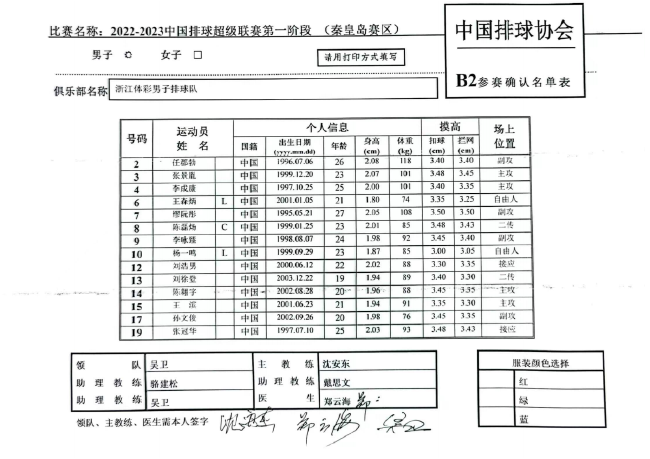 比赛名称：2022-2023中国排球超级联赛第一阶段 （秦皇岛赛区）
男子 女子
请用打印方式填写
中国排球协会
B2参赛确认名单表
俱乐部名称 浙江体彩男子排球队
号码 运动员姓名 个人信息 摸高 场上位置
国籍 出生日期(yyyy.mm.dd) 年龄 身高(cm) 体重(kg) 扣球(cm) 拦网(cm)
2 任都勃 中国 1996.07.06 26 2.08 118 3.40 3.40 副攻
3 张景胤 中国 1999.12.20 23 2.07 101 3.48 3.45 主攻
4 李成康 中国 1997.10.25 25 2.00 101 3.40 3.35 主攻
6 王森炳 L 中国 2001.01.05 21 1.80 74 3.35 3.25 自由人
7 缪阮彤 中国 1995.05.21 27 2.05 108 3.50 3.50 副攻
8 陈磊炀 C 中国 1999.01.25 23 2.01 85 3.48 3.43 二传
9 李咏臻 中国 1998.08.07 24 1.98 92 3.45 3.40 副攻
10 杨一鸣 L 中国 1999.09.29 23 1.87 85 3.00 3.05 自由人
12 刘浩男 中国 2000.06.12 22 2.02 88 3.30 3.35 接应
13 刘徐登 中国 2003.12.22 19 1.94 89 3.40 3.30 二传
14 陈翱宇 中国 2002.08.28 20 1.96 88 3.45 3.35 主攻
15 王 中国 2001.06.23 21 1.94 91 3.35 3.30 主攻
17 孙文俊 中国 2002.09.26 20 1.98 76 3.45 3.35 副攻
19 张冠华 中国 1997.07.10 25 2.03 93 3.48 3.43 接应
领队 吴卫 主教练 沈安东
助理教练 骆建松 助理教练 戴思文
助理教练 吴卫 医生 郑云海
服装颜色选择
红
绿
蓝
领队、主教练、医生需本人签字 沈安东 郑云海 吴卫